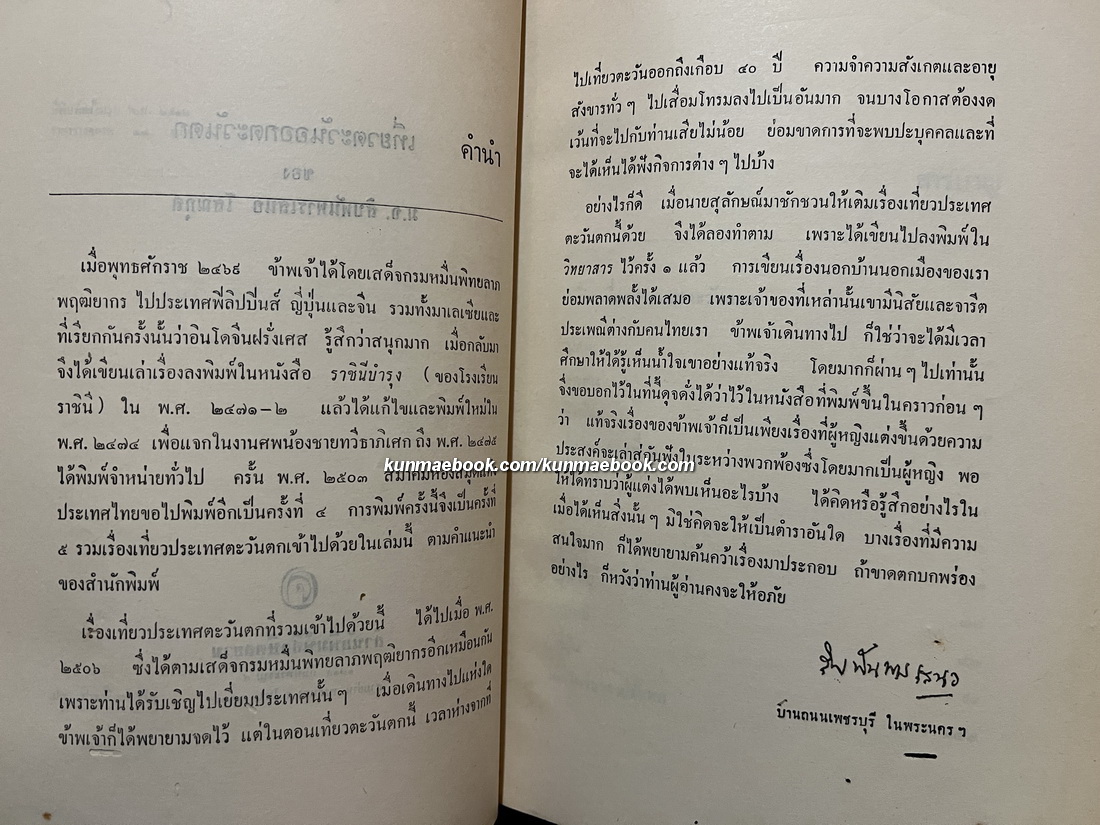 คำนำ
เมื่อพุทธศักราช ๒๔๖๙ ข้าพเจ้าได้โดยเสด็จกรมหมื่นพิทยลาภ
พฤฒิยากร ไปประเทศฟิลิปปีนส์ ญี่ปุ่นและจีน รวมทั้งมาเลเซียและ
ที่เรียกกันครั้งนั้นว่าอินโดจีนฝรั่งเศส รู้สึกว่าสนุกมาก เมื่อกลับมา
จึงได้เขียนเล่าเรื่องลงพิมพ์ในหนังสือ ราชินีบำรุง (ของโรงเรียน
ราชินี) ใน พ.ศ. ๒๔๗๑-๒ แล้วได้แก้ไขและพิมพ์ใหม่ใน
พ.ศ. ๒๔๗๔ เพื่อแจกในงานศพน้องชายทวีธาภิเศก ถึง พ.ศ. ๒๔๗๕
ได้พิมพ์จำหน่ายทั่วไป ครั้น พ.ศ. ๒๕๐๓ สมาคมห้องสมุดแห่ง
ประเทศไทยขอไปพิมพ์อีกเป็นครั้งที่ ๔ การพิมพ์ครั้งนี้จึงเป็นครั้งที่
๕ รวมเรื่องเที่ยวประเทศตะวันตกเข้าไปด้วยในเล่มนี้ ตามคำแนะนำ
ของสำนักพิมพ์
เรื่องเที่ยวประเทศตะวันตกที่รวมเข้าไปด้วยนี้ ได้ไปเมื่อ พ.ศ.
๒๕๐๖ ซึ่งได้ตามเสด็จกรมหมื่นพิทยลาภพฤฒิยากรอีกเหมือนกัน
เพราะท่านได้รับเชิญไปเยี่ยมประเทศนั้น ๆ เมื่อเดินทางไปแห่งใด
ข้าพเจ้าก็ได้พยายามจดไว้ แต่ในตอนเที่ยวตะวันตกนี้ เวลาห่างจากที่
ไปเที่ยวตะวันออกถึงเกือบ ๔๐ ปี ความจำความสังเกตและอายุ
สังขารทั่ว ๆ ไปเสื่อมโทรมลงไปเป็นอันมาก จนบางโอกาสต้องงด
เว้นที่จะไปกับท่านเสียไม่น้อย ย่อมขาดการที่จะพบปะบุคคลและที่
จะได้เห็นได้ฟังกิจการต่าง ๆ ไปบ้าง
อย่างไรก็ดี เมื่อนายสุลักษณ์มาชักชวนให้เติมเรื่องเที่ยวประเทศ
ตะวันตกนี้ด้วย จึงได้ลองทำตาม เพราะได้เขียนไปลงพิมพ์ใน
วิทยาสาร ไว้ครั้ง ๑ แล้ว การเขียนเรื่องนอกบ้านนอกเมืองของเรา
ย่อมพลาดพลั้งได้เสมอ เพราะเจ้าของที่เหล่านั้นเขามีนิสัยและจารีต
ประเพณีต่างกับคนไทยเรา ข้าพเจ้าเดินทางไป ก็ใช่ว่าจะได้มีเวลา
ศึกษาให้ได้รู้เห็นน้ำใจเขาอย่างแท้จริง โดยมากก็ผ่าน ๆ ไปเท่านั้น
จึงขอบอกไว้ในที่นี้ดุจดั่งได้ว่าไว้ในหนังสือที่พิมพ์ขึ้นในคราวก่อน ๆ
ว่า แท้จริงเรื่องของข้าพเจ้าก็เป็นเพียงเรื่องที่ผู้หญิงแต่งขึ้นด้วยความ
ประสงค์จะเล่าสู่กันฟังในระหว่างพวกพ้องซึ่งโดยมากเป็นผู้หญิง พอ
ให้ได้ทราบว่าผู้แต่งได้พบเห็นอะไรบ้าง ได้คิดหรือรู้สึกอย่างไรใน
เมื่อได้เห็นสิ่งนั้น ๆ มิใช่คิดจะให้เป็นตำราอันใด บางเรื่องที่มีความ
สนใจมาก ก็ได้พยายามค้นคว้าเรื่องมาประกอบ ถ้าขาดตกบกพร่อง
อย่างไร ก็หวังว่าท่านผู้อ่านคงจะให้อภัย
สิบพันพารเสนอ
บ้านถนนเพชรบุรี ในพระนคร ฯ
kunmaebook.com/kunmaebook.com